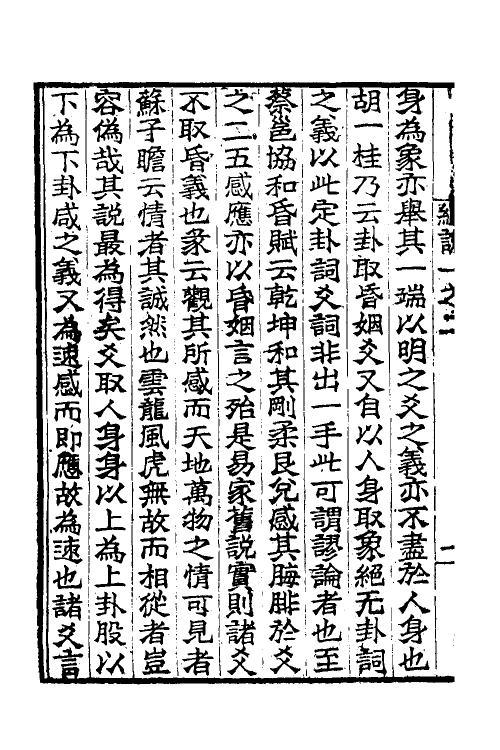 身為象亦舉其一瑞以明之爻之義亦不盡於人身也
胡一桂乃云卦取昏姻爻又自以人身取象絕无卦詞
之義以此定卦詞爻詞非出一手此可謂謬論者也至
蔡邕協和昏賦云乾坤和其剛柔艮兌感其脢腓於爻
之二五感應亦以昏姻言之殆是易家舊說實則諸爻
不取昏義也彖云觀其所感而天地萬物之情可見者
蘇子瞻云情者其誠然也雲龍風虎無故而相從者豈
容偽哉其說最為得矣爻取人身身以上為上卦股以
下為下卦咸之義又為速感而即應故為速也諸爻言